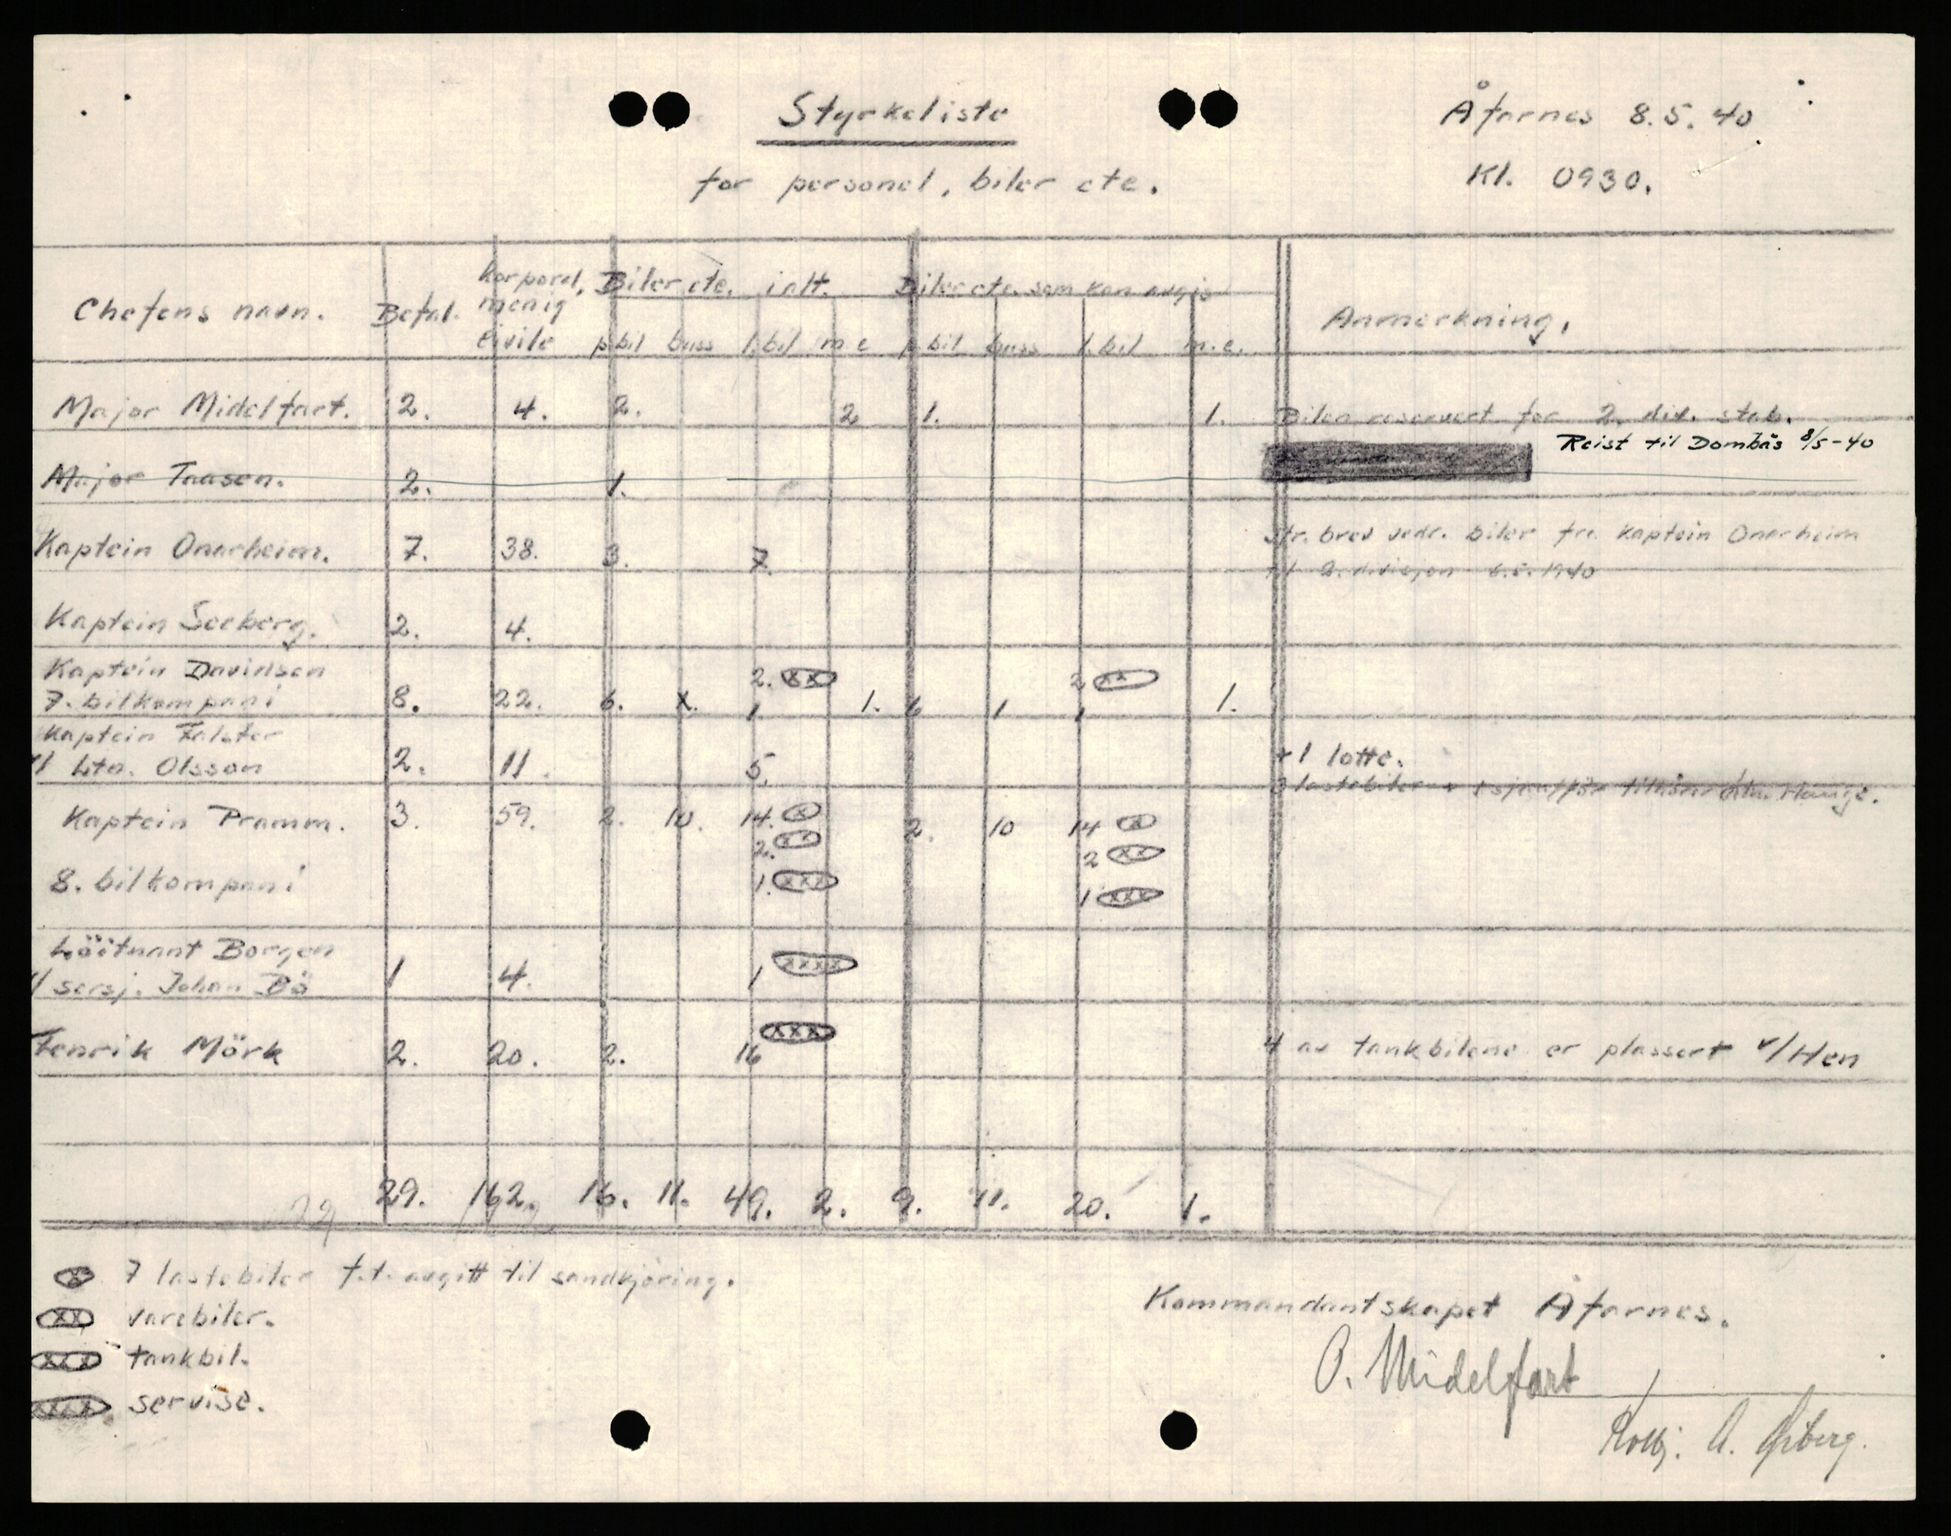 Styrkeliste
Åfarnes 8.5.40
for personel, biler etc.
Kl. 0930.
Chefens navn. Befal. korporal, menig civile Biler etc. ialt. Biler etc. som kan avgis Anmerkning.
p.bil buss l.bil m c p.bil buss l.bil m.c.
Major Midelfart. 2. 4. 2. 2 1. 1. Bilen reservert for 2. div. stab.
Reist til Dombås 8/5-40
Major Taasen. 2. 1.
Kaptein Onarheim. 7. 38. 3. 7. Str. brev vedr. biler fra Kaptein Onarheim
til 2. divisjon 6.5.1940
Kaptein Seeberg. 2. 4.
Kaptein Davidsen 2. xx 2 xx
7. bilkompani 8. 22. 6. x. 1. 1. 6 1 1 1.
Kaptein Falster
v/ Ltn. Olsson 2. 11. 5. +1 lotte.
3 lastebiler + 1 sjaufför
Kaptein Pramm. 3. 59. 2. 10. 14. x 2. 10 14 x
2. xx 2 xx
8. bilkompani 1. xxx 1 xxx
Löitnant Borgen
v/ sersj. Johan Bö 1 4. 1 xxxx
Fenrik Mörk 2. 20. 2. 16 xxx 4 av tankbilene er plassert v/Hen
29. 162. 16. 11. 49. 2. 9. 11. 20. 1.
x 7 lastebiler f.t. avgitt til sandkjöring.
xx varebiler.
xxx tankbil.
xxxx servise.
Kommandantskapet Åfarnes.
O. Midelfart
Kolbj. A. Öiberg.